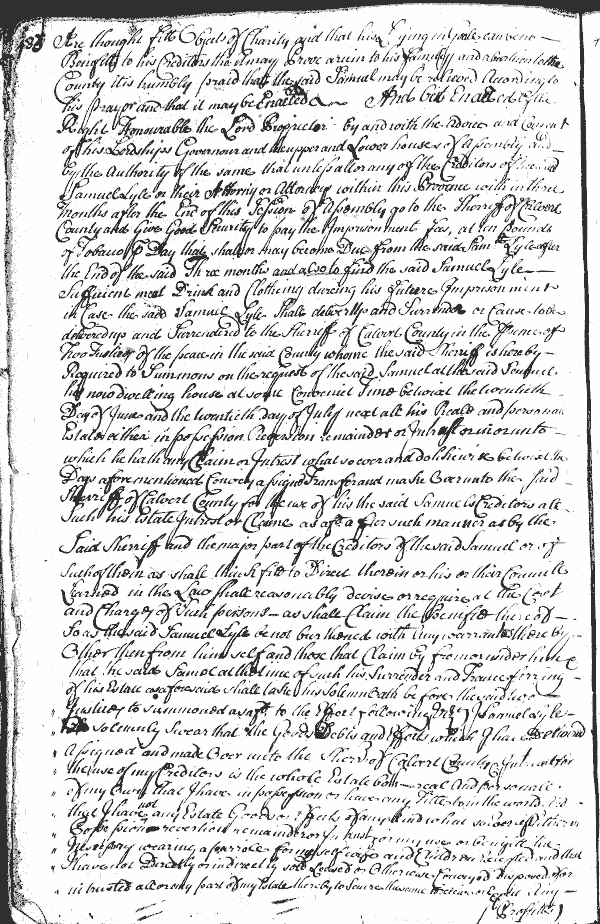 Are thought fitt Objects of Charity and that his Lying in Gaole can be no
Benefitt to his Creditors tho it may prove a ruin to his family and a burthen to the
County it is humbly praid that the said Samuel may be relieved According to
his prayer and that it may be Enacted And be it Enacted by the
Right Honourable the Lord Proprietor by and with the advice and Consent
of his Lordships Governour and the upper and Lower houses of Assembly and
by the Authority of the same that unless all or any of the Creditors of the said
Samuel Lyle or their Attorney or Attorneys within this Province within three
months after the End of this Session of Assembly go to the Sherriff of Calvert
County and Give Good Security to pay the Imprisonment fees, at ten pounds
of Tobacco p Day that shall or may become Due from the said Saml Lyle after
the End of the said Three months and also to find the said Samuel Lyle
Sufficient meat Drink and Clothing dureing his future Imprisonment
in Case the said Samuel Lyle shall deliver up and Surrender or Cause to be
delivered up and Surrendered to the Sherriff of Calvert County in the presence of
Two Justices of the peace in the said County whome the said Sherriff is hereby
Required to Summons on the request of the said Samuel at the said Samuel
his now dwelling house at some Convenient Time betwixt the twentieth
Day of June and the twentieth day of July next all his Reale and personal
Estate either in possession Reversion remainder or Intrest or in or unto
which he hath any Claim or Intrest whatsoever and do likewise betwixt the
Days aforementioned Convey assigne Transfer and make Over unto the said
Sherriff of Calvert County for the use of his the said Samuels Creditors all
Such his Estate Intrest or Claime as aft after such manner as by the
Said Sherriff and the major part of the Creditors of the said Samuel or of
such of them as shall think fitt to Direct therein or his or their Councill
Learned in the Law shall reasonably devise or require at the Cost
and Charge of Such persons as shall Claim the Benefitt thereof
So as the said Samuel Lyle be not burthened with Any warrantie thereby
Other then from himself and those that Claim by from or under him
that the said Samuel at the time of such his Surrender and Transferring
of his Estate as aforesaid shall take his Solemn Oath before the said two
Justices to summoned as aft to the Effect following Viz I Samuel Lyle
do Solemnly Swear that the Goods Debts and Effects which I have Delivered
Assigned and made Over unto the Sherriff of Calvert County
the use of my Creditors is the whole Estate both real And personale
of my Own that I have in possession or have any Title to in the world and
that I have not any Estate Goods or Effects of any kind whatsoever either in
Possession reversion remainder or Trust for my use or benefitt the
Necessary wearing apparrele for my self wife and Children excepted and that
I have not Directly or indirectly sold Leased or Otherwise Conveyed disposed of or
intrusted all or any part of my Estate thereby to secure the same to receive or Expect Any
Profitt